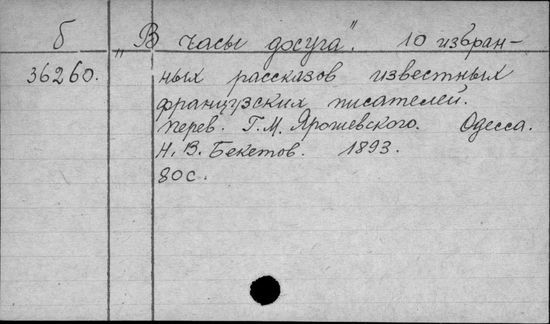 б „В часы досуга“. 10 избран-
36260. ных рассказов известных
французских писателей.
Перев. Г. М. Ярошевского. Одесса.
Н. В. Бекетов. 1893.
80 с.